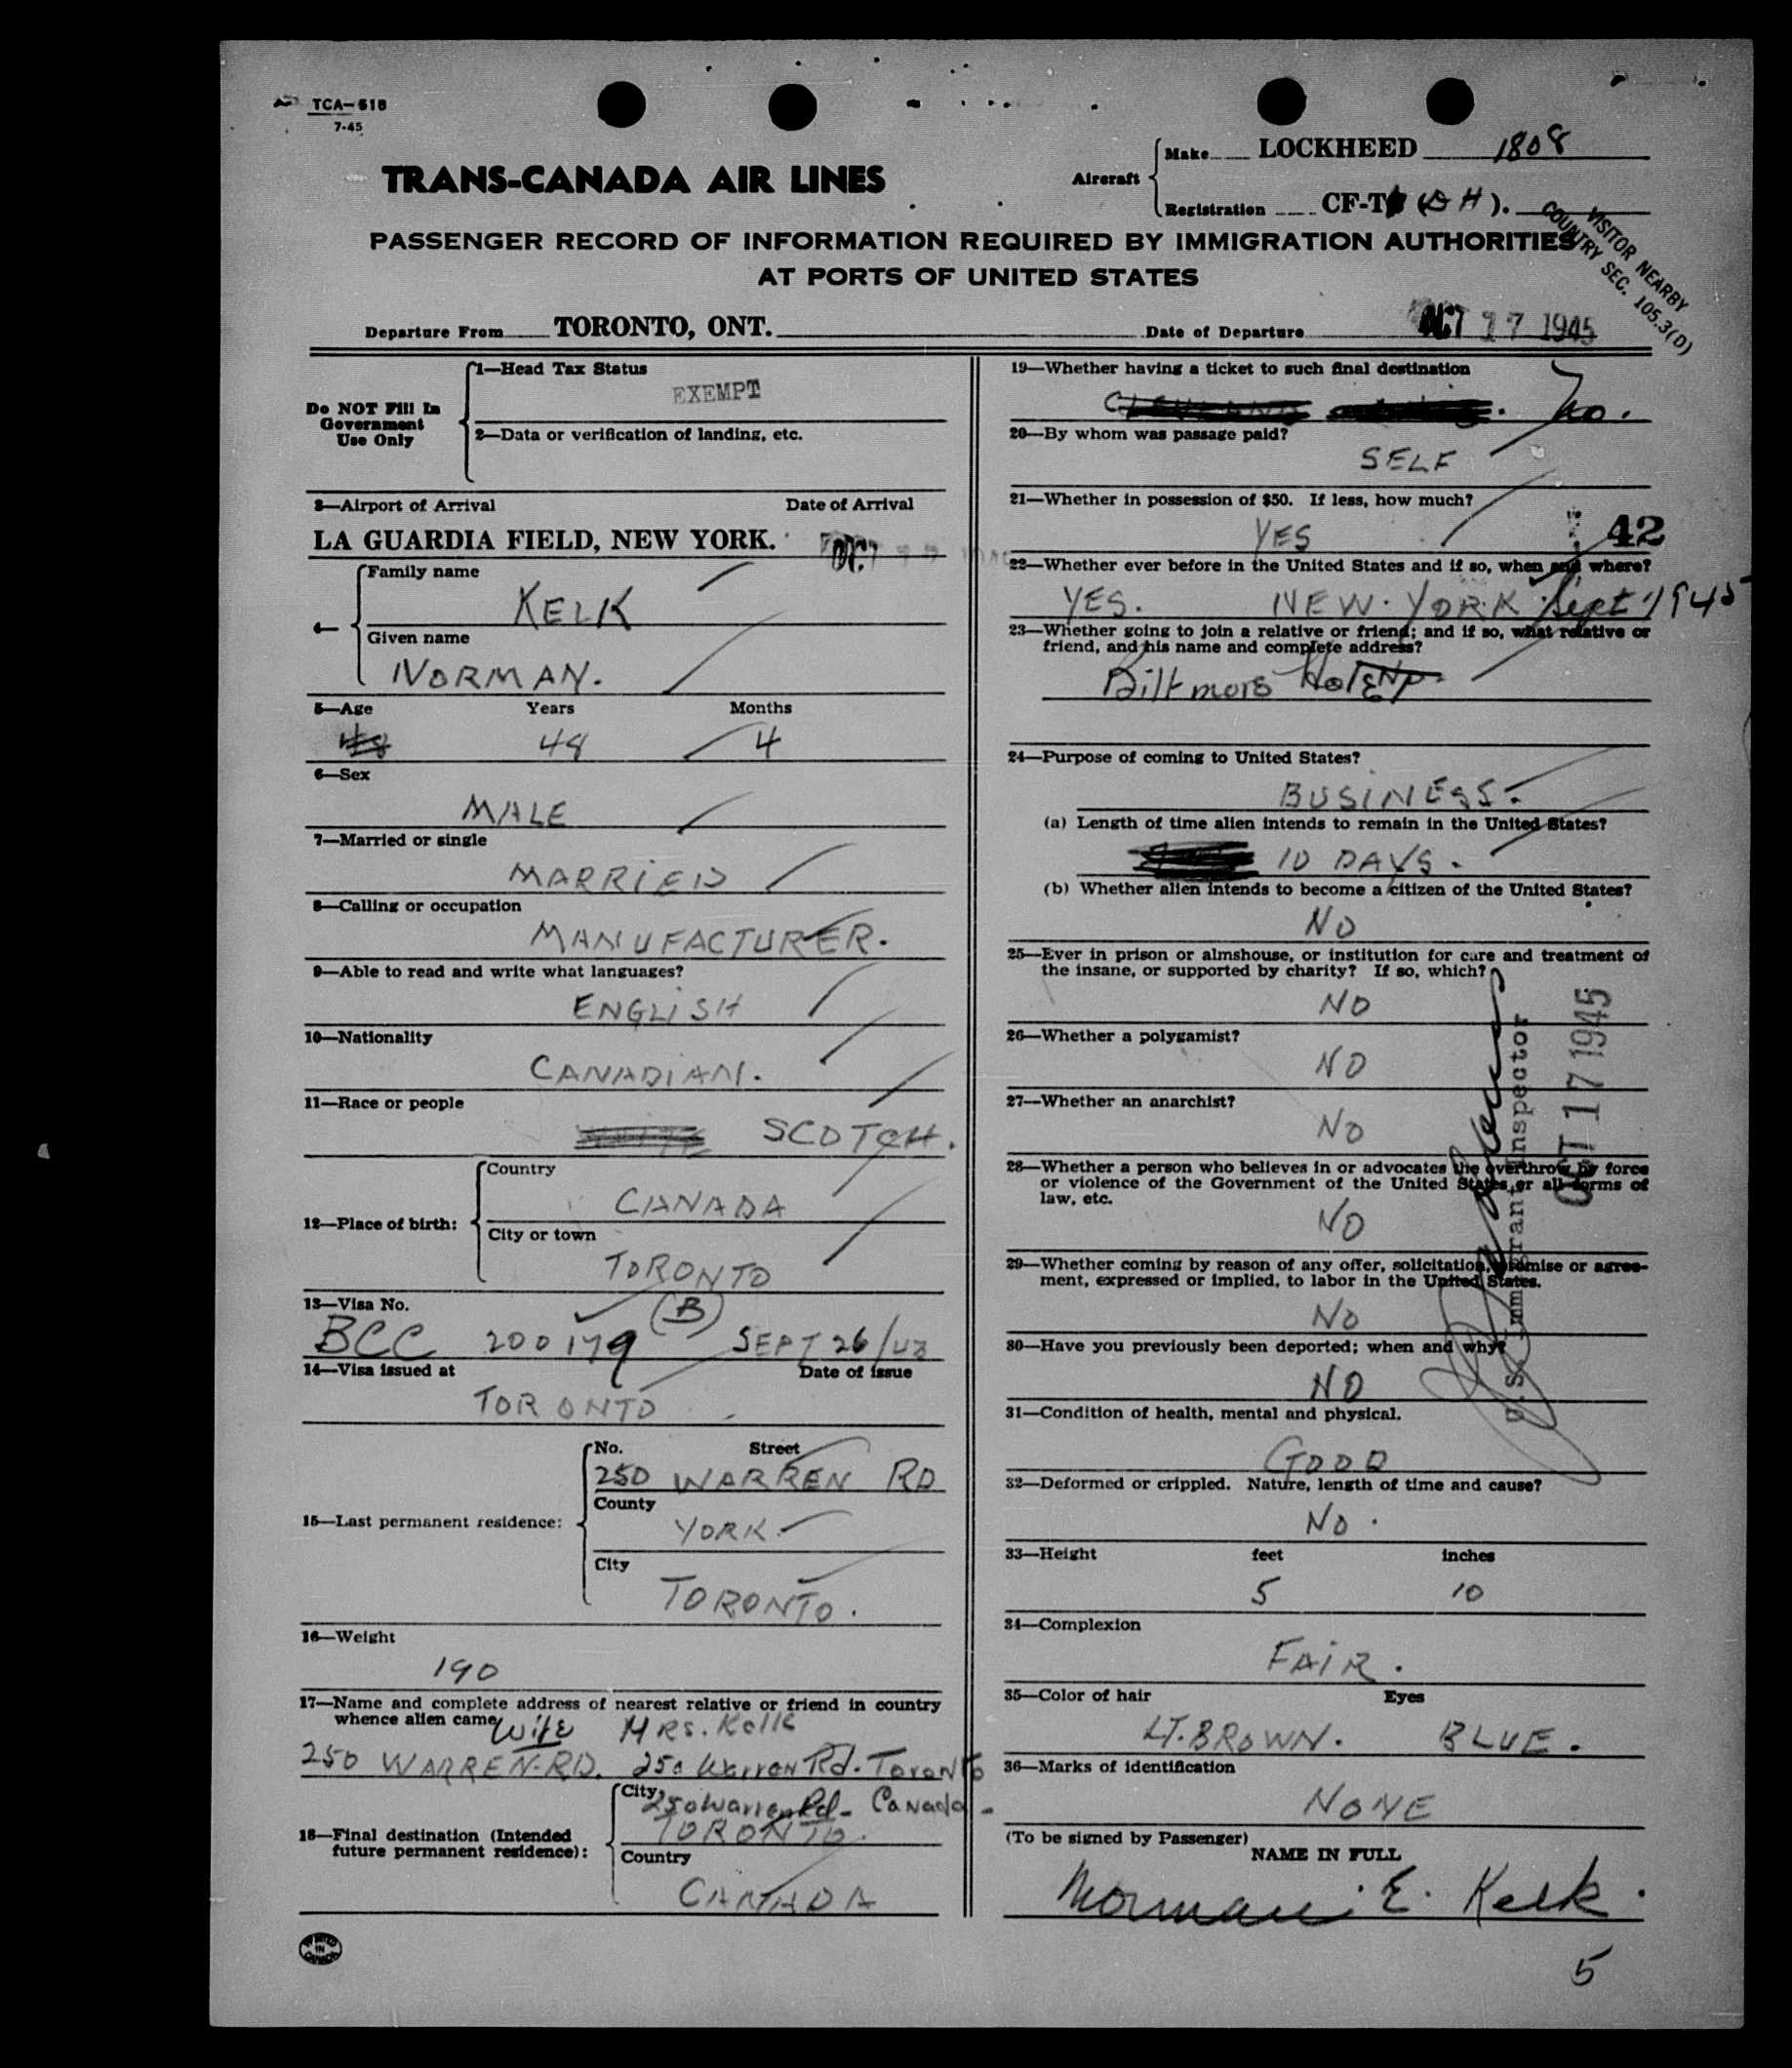 TCA-518
7-45
TRANS-CANADA AIR LINES
Aircraft
Make LOCKHEED 1808
Registration CF-T (DH).
VISITOR NEARBY
COUNTRY SEC. 105.3(D)
PASSENGER RECORD OF INFORMATION REQUIRED BY IMMIGRATION AUTHORITIES
AT PORTS OF UNITED STATES
Departure From TORONTO, ONT. Date of Departure OCT 17 1945
Do NOT Fill In
Government
Use Only
1—Head Tax Status
EXEMPT
2—Data or verification of landing, etc.
3—Airport of Arrival Date of Arrival
LA GUARDIA FIELD, NEW YORK. OCT
4—
Family name
KELK
Given name
NORMAN.
5—Age Years Months
48 48 4
6—Sex
MALE
7—Married or single
MARRIED
8—Calling or occupation
MANUFACTURER.
9—Able to read and write what languages?
ENGLISH
10—Nationality
CANADIAN.
11—Race or people
SCOTCH.
12—Place of birth:
Country
CANADA
City or town
TORONTO
13—Visa No. (B)
BCC 200179 SEPT 26/43
14—Visa issued at Date of issue
TORONTO
15—Last permanent residence:
No. Street
250 WARREN RD
County
YORK
City
TORONTO.
16—Weight
190
17—Name and complete address of nearest relative or friend in country
whence alien came wife Mrs. Kelk
250 WARREN RD. 250 Warren Rd. Toronto
18—Final destination (Intended
future permanent residence):
City 250 Warren Rd - Canada -
TORONTO.
Country
CANADA
PRINTED
IN
CANADA
19—Whether having a ticket to such final destination
CLEVELAND No.
20—By whom was passage paid?
SELF
21—Whether in possession of $50. If less, how much?
YES 42
22—Whether ever before in the United States and if so, when and where?
YES. NEW YORK Sept 1945
23—Whether going to join a relative or friend; and if so, what relative or
friend, and his name and complete address?
Biltmore Hotel
24—Purpose of coming to United States?
BUSINESS.
(a) Length of time alien intends to remain in the United States?
10 DAYS.
(b) Whether alien intends to become a citizen of the United States?
NO
25—Ever in prison or almshouse, or institution for care and treatment of
the insane, or supported by charity? If so, which?
NO
26—Whether a polygamist?
NO
27—Whether an anarchist?
NO
28—Whether a person who believes in or advocates the overthrow by force
or violence of the Government of the United States or all forms of
law, etc.
NO
29—Whether coming by reason of any offer, solicitation, promise or agree-
ment, expressed or implied, to labor in the United States.
NO
30—Have you previously been deported; when and why?
NO
31—Condition of health, mental and physical.
GOOD
32—Deformed or crippled. Nature, length of time and cause?
NO.
33—Height feet inches
5 10
34—Complexion
FAIR.
35—Color of hair Eyes
LT. BROWN. BLUE.
36—Marks of identification
NONE
(To be signed by Passenger)
NAME IN FULL
Norman E. Kelk.
5
U.S. Immigrant Inspector
OCT 17 1945